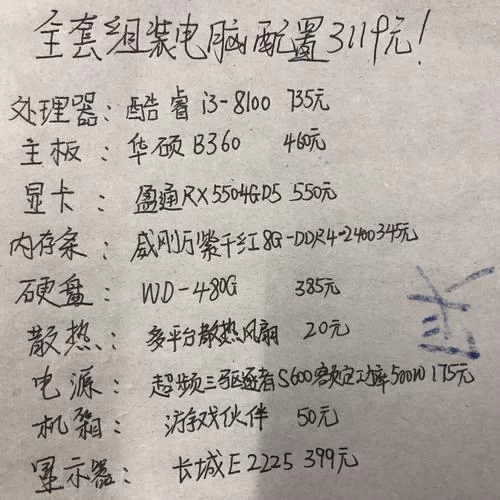 全套组装电脑配置3119元!
处理器：酷睿i3-8100 735元
主板：华硕B360 460元
显卡：盈通RX5504GD5 550元
内存条：威刚万紫千红8G-DDR4-2400 345元
硬盘：WD-480G 385元
散热：多平台散热风扇 20元
电源：超频三驱逐者S600额定功率500W 175元
机箱：游戏伙伴 50元
显示器：长城E2225 399元